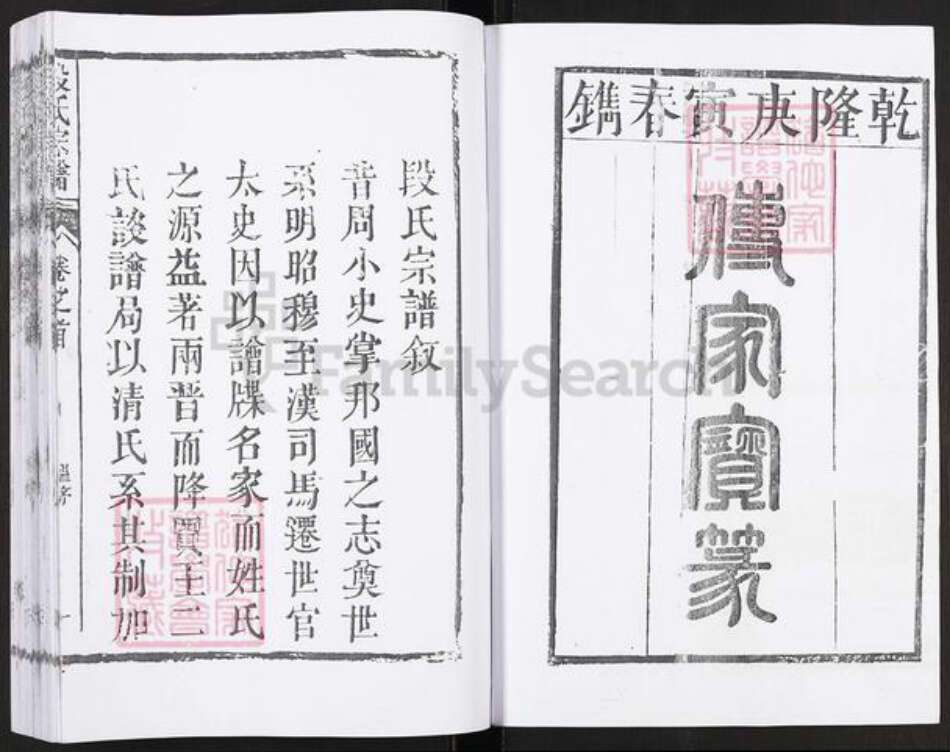 乾隆庚寅春鐫
傳家寶篆
段氏宗譜敘
昔周小史掌邦國之志奠世
系明昭穆至漢司馬遷世官
太史因以譜牒名家而姓氏
之源益著兩晉而降賈王二
氏談譜局以清氏系其制加
段氏宗譜
卷之首
FamilySearch